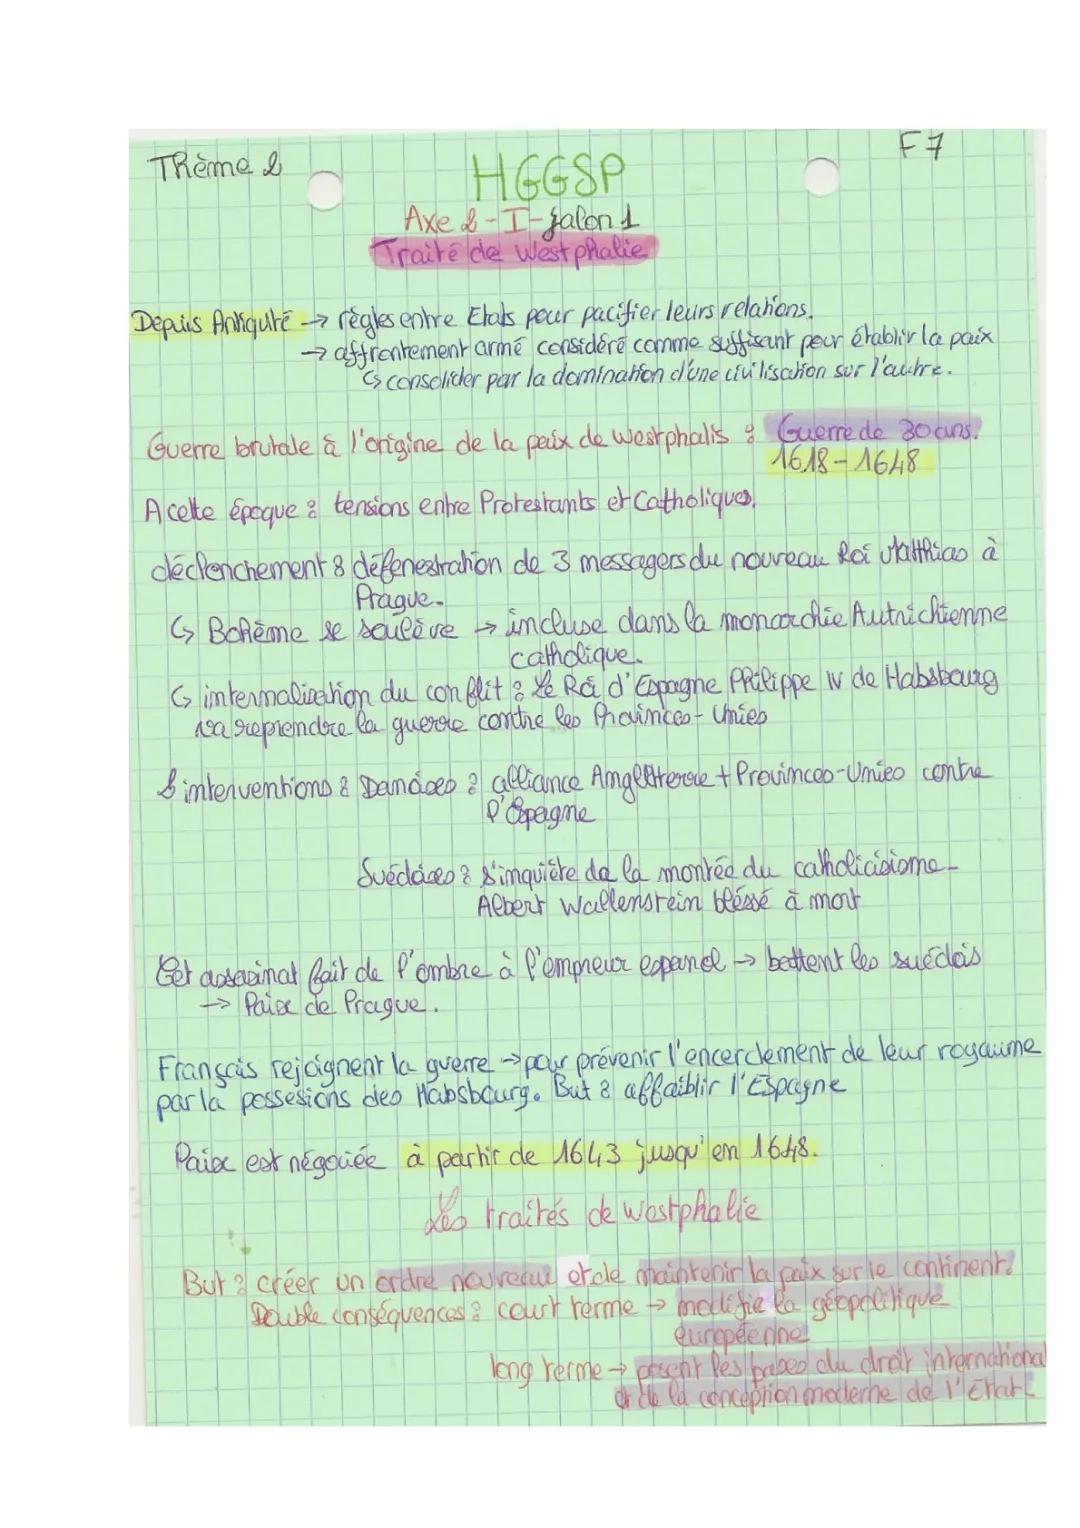 Thème 2
F7
HGGSP
Axe 2 - I - jalon 1
Traité de Westphalie
Depuis Antiquité → règles entre Etats pour pacifier leurs relations.
→ affrontement armé considéré comme suffisant pour établir la paix
↳ consolider par la domination d'une civilisation sur l'autre.
Guerre brutale à l'origine de la paix de Westphalis : Guerre de 30 ans.
1618 - 1648
A cette époque : tensions entre Protestants et Catholiques.
déclenchement : défenestration de 3 messagers du nouveau Roi Matthias à
Prague.
↳ Bohème se soulève → incluse dans la monarchie Autrichienne
catholique.
↳ internalisation du conflit : Le Roi d'Espagne Philippe IV de Habsbourg
va reprendre la guerre contre les Provinces-Unies
interventions : Danoises : alliance Angleterre + Provinces-Unies contre
l'Espagne
Suédoises : s'inquiète de la montée du catholicisisme -
Albert Wallenstein bléssé à mort
Cet assassinat fait de l'ombre à l'empreur espanol → battent les suédois
→ Paix de Prague.
Français rejoignent la guerre → pour prévenir l'encerclement de leur royaume
par la possesions des Habsbourg. But : affaiblir l'Espagne
Paix est négociée à partir de 1643 jusqu'en 1648.
Les traités de Westphalie
But : créer un ordre nouveau et de maintenir la paix sur le continent.
Double conséquences : court terme → modifie la géopolitique
européenne
long terme → posent les bases du droit international
et de la conception moderne de l'Etat.